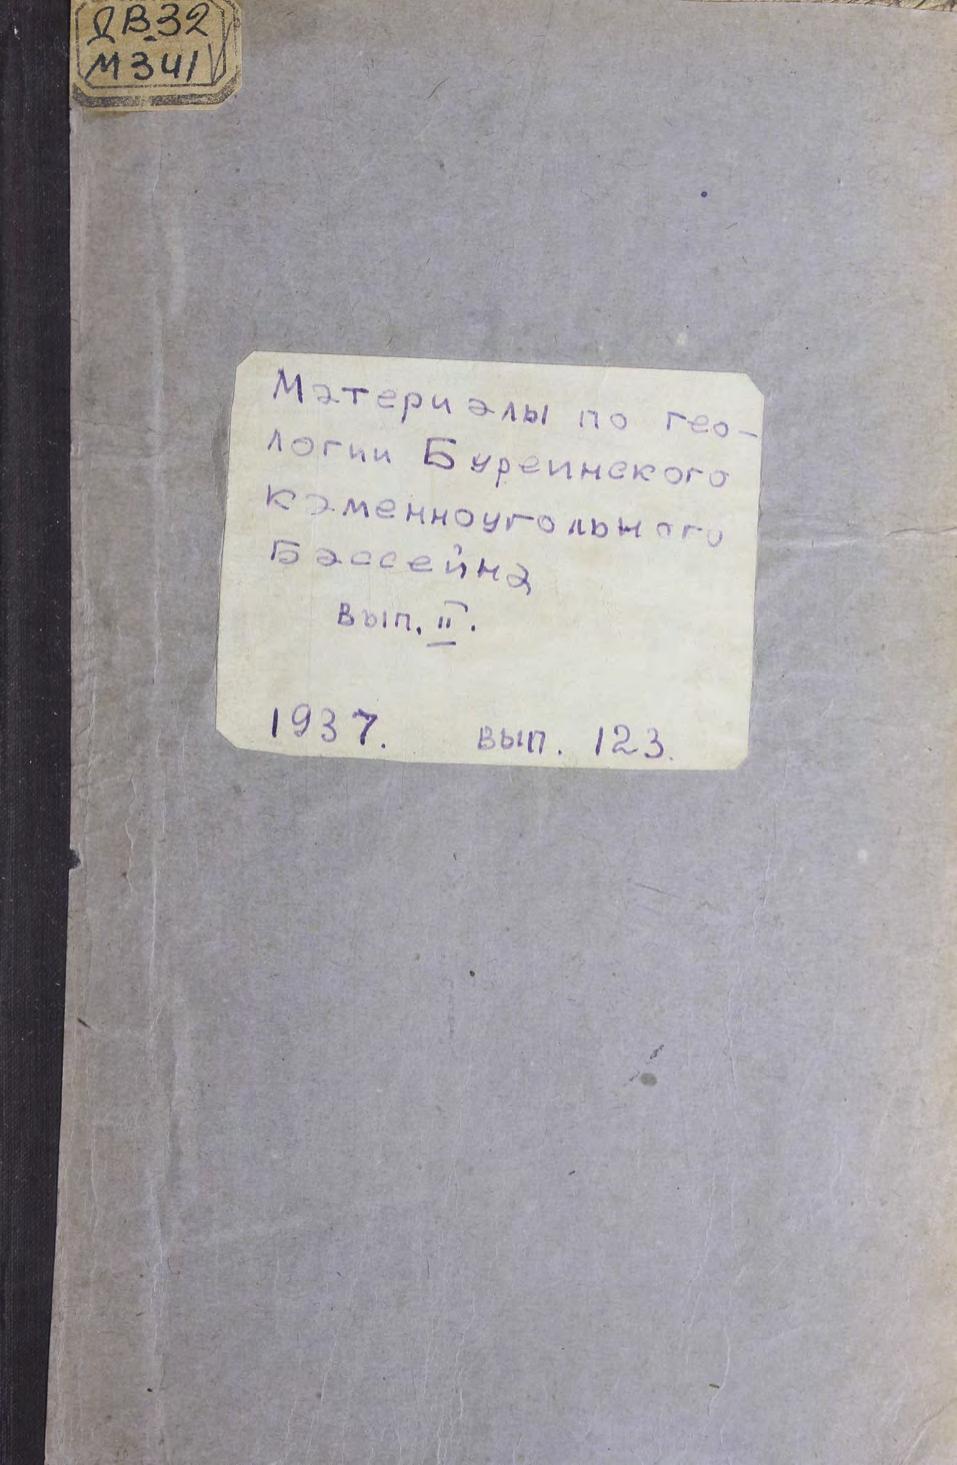 ДВ.32
М341
Материалы по гео-
логии Буреинского
каменноугольного
Бассейна
вып. II.
1937. вып. 123.